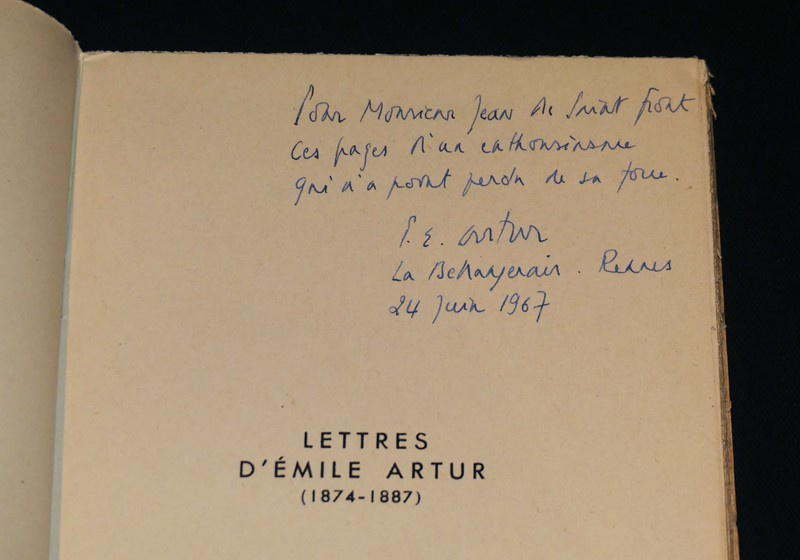 Pour Monsieur Jean de Saint Front
Ces pages d'un enthousiasme
qui n'a point perdu de sa force.
P. E. Artur
La Rennes
24 Juin 1967
LETTRES
D'ÉMILE ARTUR
(1874-1887)